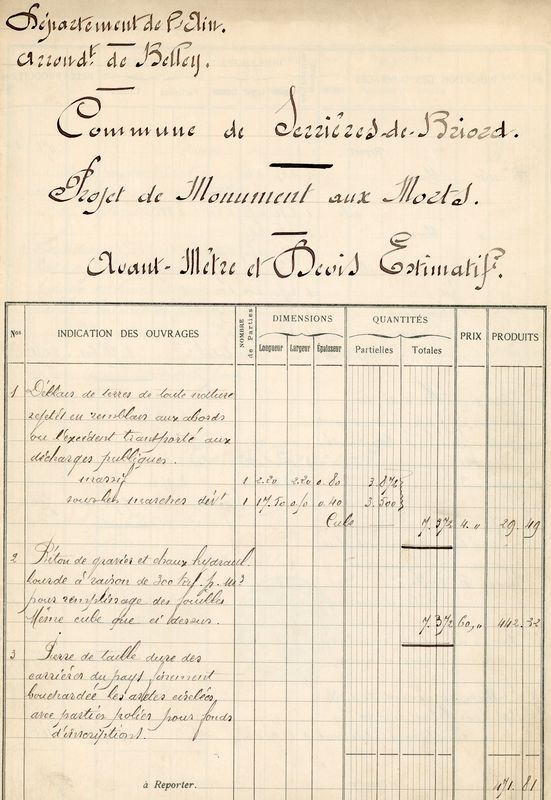 Département de l'Ain.
Arrondt. de Belley.
Commune de Serrières-de-Briord.
Projet de Monument aux Morts.
Avant-Mètre et Devis Estimatif.
Nos INDICATION DES OUVRAGES NOMBRE de Parties DIMENSIONS Longueur Largeur Épaisseur QUANTITÉS Partielles Totales PRIX PRODUITS
1 Déblais de terres de toute nature
rejetés en remblais aux abords
ou l'excédent transporté aux
décharges publiques.
massif 1 2.20 2.20 0.80 3.872
sous les marches dért 1 17.50 0.40 3.500
Cube 7.372 4.,, 29.49
2 Béton de gravier et chaux hydraul.
lourde à raison de 300 kil. p. M3
pour remplissage des fouilles
Même cube que ci dessus. 7.372 60,,, 442.32
3 Pierre de taille dure des
carrières du pays finement
bouchardée les arêtes ciselées
avec parties polies pour fonds
d'inscriptions.
à Reporter. 471.81